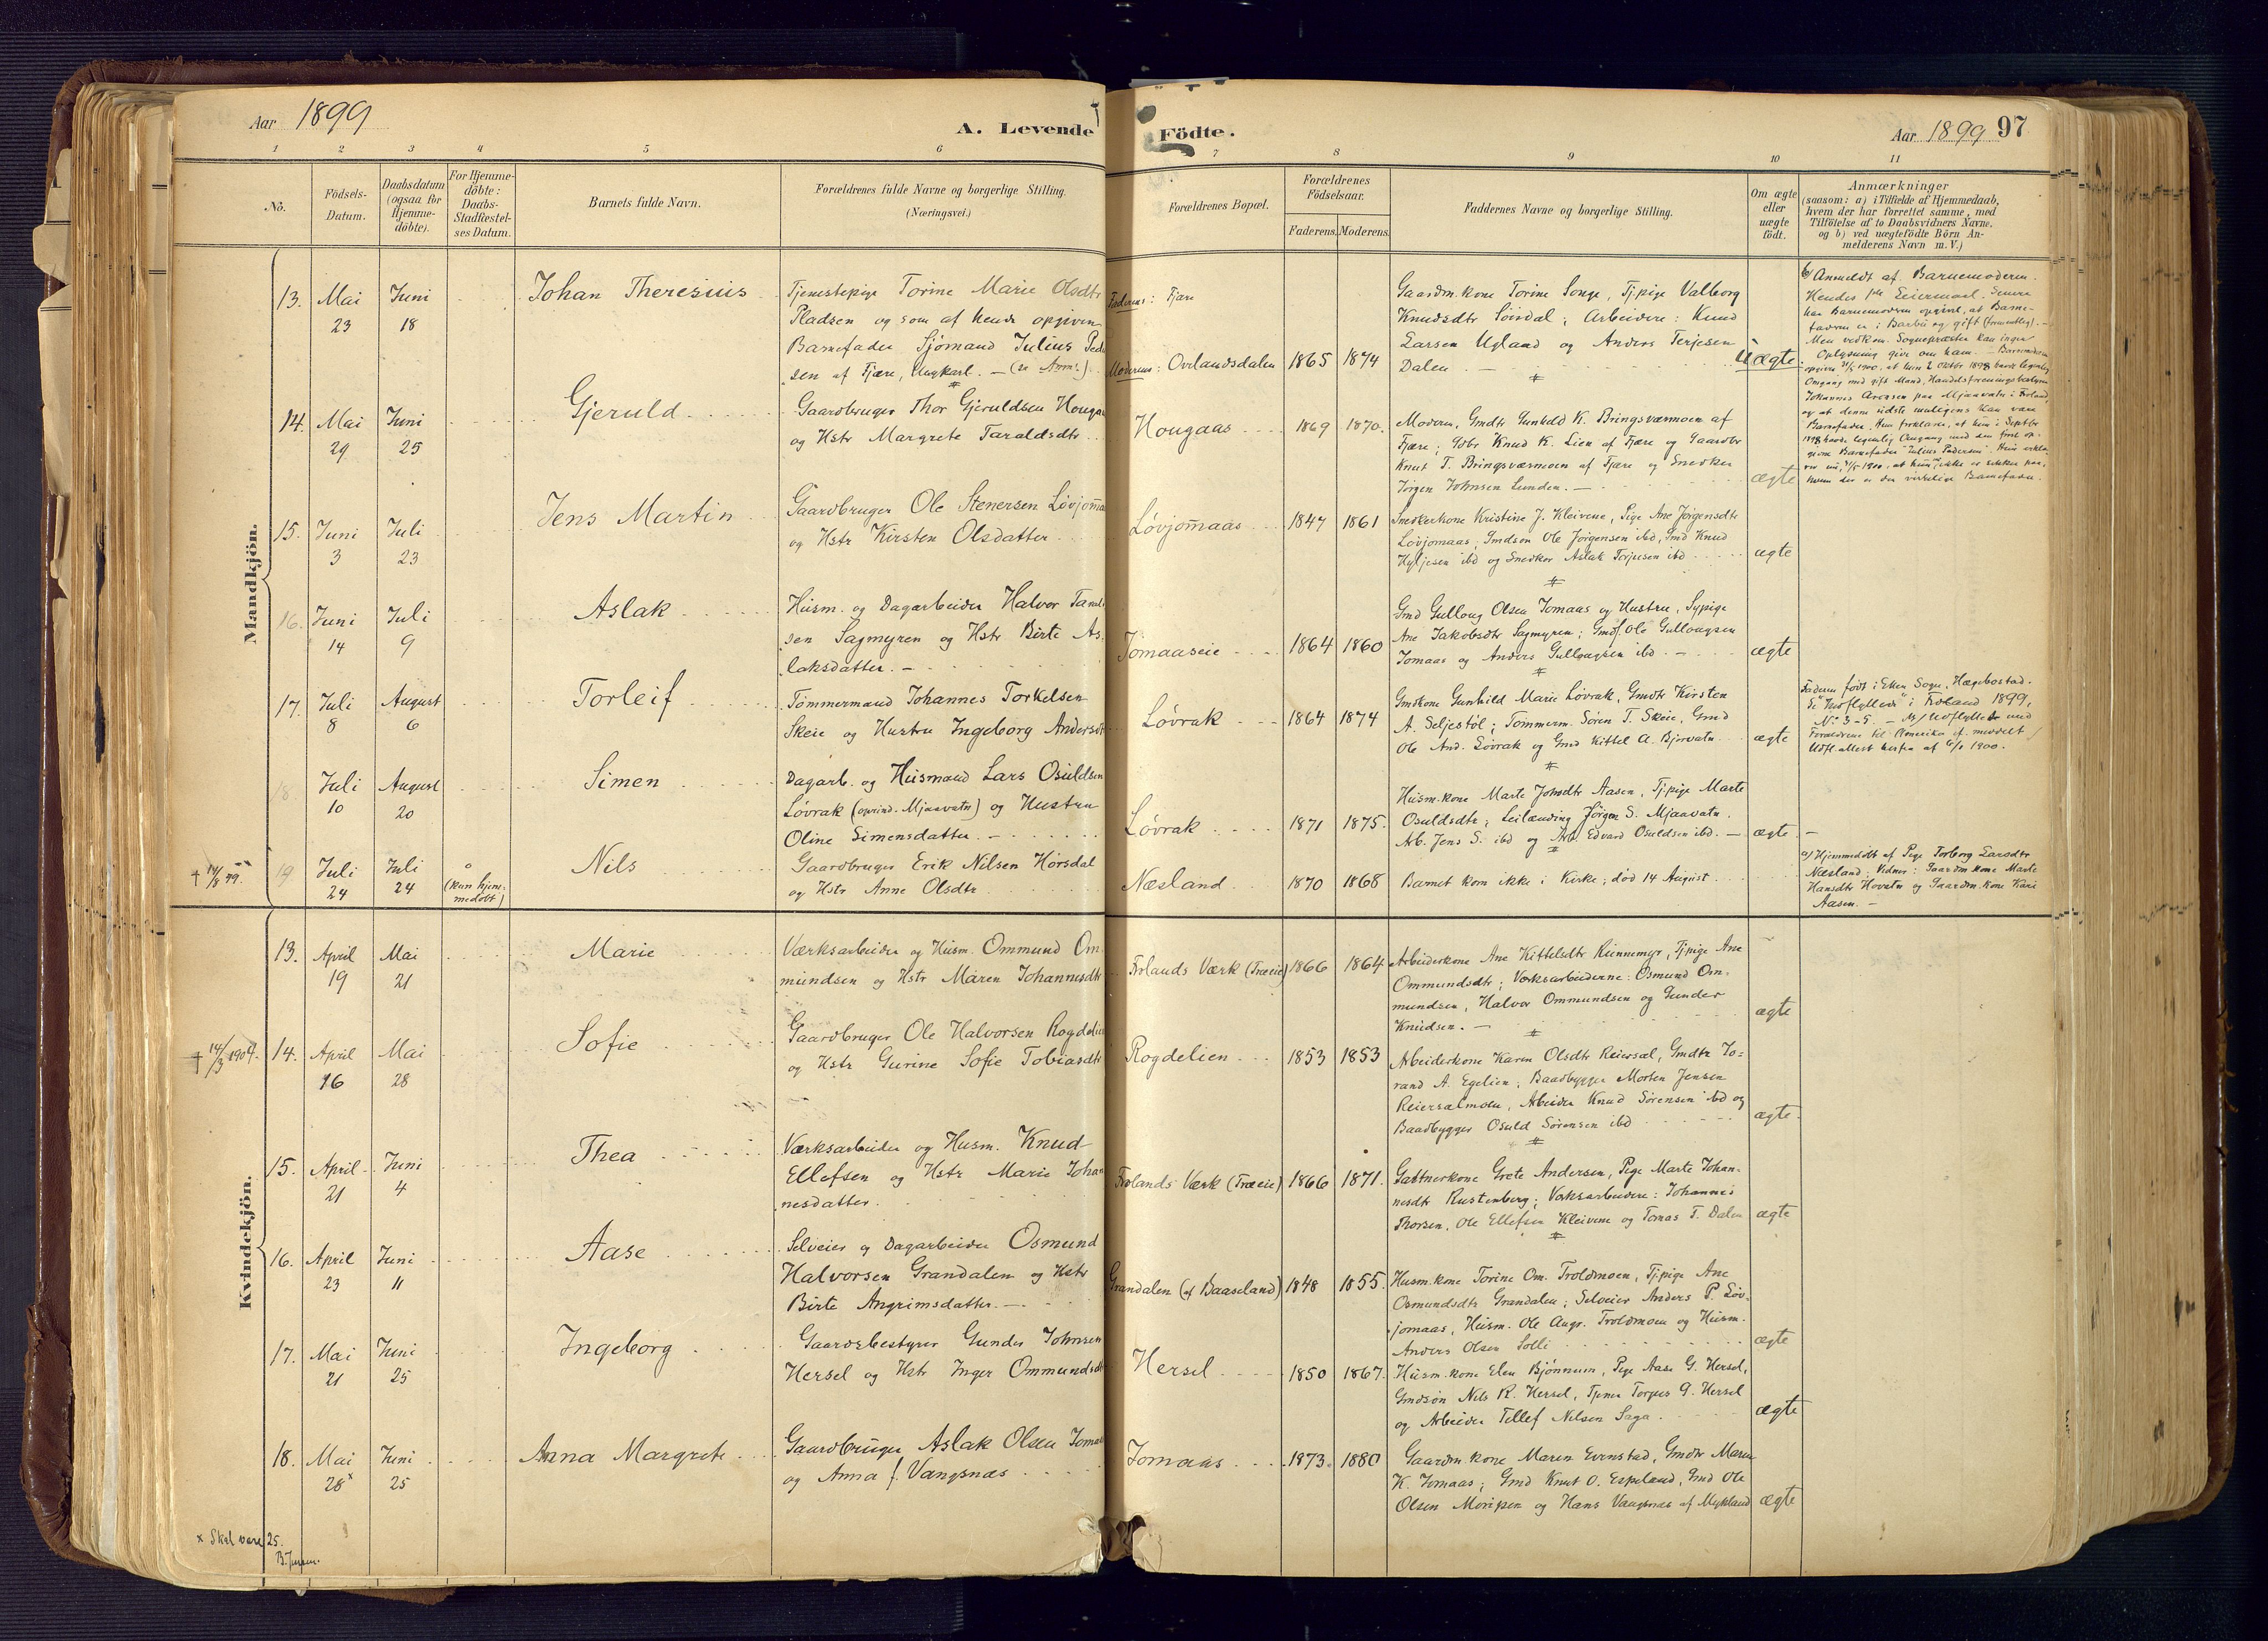 Aar 1899
A. Levende
Födte.
Aar 1899 97
1 2 3 4 5 6 7 8 9 10 11
Nô.
Födsels-
Datum.
Daabsdatum
(ogsaa for
Hjemme-
döbte).
For Hjemme-
döbte:
Daabs-
Stadfestel-
ses Datum.
Barnets fulde Navn.
Forældrenes fulde Navne og borgerlige Stilling.
(Næringsvei.)
Forældrenes Bopæl.
Forældrenes
Födselsaar.
Faderens. Moderens.
Faddernes Navne og borgerlige Stilling.
Om ægte
eller
uægte
födt.
Anmærkninger
(saasom: a) i Tilfælde af Hjemmedaab,
hvem der har forrettet samme, med
Tilföielse af to Daabsvidners Navne.
og b) ved uægtefödte Börn An-
melderens Navn m. V.)
Mandkjön.
13. Mai
23
Juni
18
Johan Theresius
Tjenestepige Torine Marie Olsdtr
Pladsen og som af hende opgiven
Barnefader Sjömand Julius Peder
sen af Fjære, Ungkarl. — (se Anm.)
Faderens: Fjære
Moderens: Ovelandsdalen
1865 1874
Gaardm.kone Torine Songe, Tj.pige Valborg
Knudsdtr Löindal; Arbeidere: Knud
Larsen Ugland og Anders Terjesen
Dalen
Uægte
b) Anmeldt af Barnemoderen.
Hendes 1ste Leiermaal. Senere
har Barnemoderen opgivet, at Barne-
faderen er i Barbu og gift (formentlig).
Men vedkom. Sognepræster kan ingen
Oplysning give om ham. — Barnemoderen
14. Mai
29
Juni
25
Gjeruld
Gaardbruger Thor Gjeruldsen Hougaas
og Hstr Margrete Taraldsdtr
Hougaas
1869 1870.
Moderen, Gmdtr Gunhild K. Bringsværmoen af
Fjære; Gdbr Knud K. Lien af Fjære og Gaardbr
Knut T. Bringsværmoen af Fjære og Snedker
Jörgen Johnsen Lunden.
ægte
15. Juni
3
Juli
23
Jens Martin
Gaardbruger Ole Stenersen Lövjomaas
og Hstr Kirsten Olsdatter
Lövjomaas
1847 1861
Snedkerkone Kristine J. Kleivene, Pige Ane Jörgensdtr
Lövjomaas; Gmdsön Ole Jörgensen ibd, Gmd Knud
ibd og Snedker Aslak Terjesen ibd
ægte
16. Juni
14
Juli
9
Aslak
Husm. og Dagarbeider Halvor Taral
sen Sagmyren og Hstr Birte As-
laksdatter.
Jomaaseie
1864 1860
Gmd Gulloug Olsen Jomaas og Hustru, Sypige
Ane Jakobsdtr Sagmyren; Gmdf. Ole Gullougsen
Jomaas og Anders Gullougsen ibd.
ægte
17. Juli
8
August
6
Torleif
Tömmermand Johannes Torkelsen
Skeie og Hustru Ingeborg Andersdtr
Lövrak
1864 1874
Gmdkone Gunhild Marie Lövrak, Gmdtr Kirsten
A. Seljestöl; Tömmerm. Sören T. Skeie, Gmd
Ole And. Lövrak og Gmd Kittel A. Bjorvatn
ægte
Faderen född i Eken Sogn, Hægebostad.
Se "Indflyttede" i Froland 1899,
No 3-5. — Udflyttede med
Forældrene til Amerika
1900.
18. Juli
10
August
20
Simen
Dagarb. og Husmand Lars Osuldsen
Lövrak (oprind. Mjaavatn) og Hustru
Oline Simensdatter.
Lövrak
1871 1875.
Husm.kone Marte Johsdtr Aasen, Tj.pige Marte
Osuldsdtr; Leilænding Jörgen S. Mjaavatn,
Arb. Jens S. ibd og Arb. Edvard Osuldsen ibd.
ægte
† 14/8 99.
19 Juli
24
Juli
24
(kun hjem-
medöbt)
Nils
Gaardbruger Erik Nilsen Hörsdal
og Hstr Anne Olsdtr
Næsland
1870 1868
Barnet kom ikke i Kirke; död 14 August
a) Hjemmedöbt af Pige Torborg Larsdtr
Næsland. Vidner: Gaardm.kone Marte
Hansdtr Hovatn og Gaardm.kone Kari
Aasen.
Kvindekjön.
13. April
19
Mai
21
Marie
Værksarbeider og Husm. Ommund Om-
mundsen og Hstr Maren Johannesdtr
Frolands Værk (Træeie)
1866 1864
Arbeiderkone Ane Kittelsdtr Rönnemyr, Tj.pige Ane
Ommundsdtr; Værksarbeiderne: Osmund Om-
mundsen, Halvor Ommundsen og Gunder
Knudsen.
ægte
† 14/3 1904.
14. April
16
Mai
28
Sofie
Gaardbruger Ole Halvorsen Rogdelien
og Hstr Gurine Sofie Tobiasdtr
Rogdelien
1853 1853
Arbeiderkone Karen Olsdtr Reiersöl, Gmdtr To-
rand A. Egelien; Baadbygger Morten Jensen
Reiersölmoen, Arbeider Knud Sörensen ibd og
Baadbygger Osuld Sörensen ibd
ægte
15. April
21
Juni
4
Thea
Værksarbeider og Husm. Knud
Ellefsen og Hstr Marie Johan
nesdatter.
Frolands Værk (Træeie)
1866 1871.
Gartnerkone Grete Andersen, Pige Marte Johan-
nesdtr Rustenberg; Værksarbeidere: Johannes
Thorsen, Ole Ellefsen Kleivene og Tomas T. Dalen
ægte
16. April
23
Juni
11
Aase
Selveier og Dagarbeider Osmund
Halvorsen Grandalen og Hstr
Birte Angrimsdatter.
Grandalen (af Baaseland)
1848 1855.
Husm.kone Torine Om. Troldmoen, Tj.pige Ane
Osmundsdtr Grandalen; Selveier Anders P. Löv-
jomaas, Husm. Ole Angr. Troldmoen og Husm.
Anders Olsen Solli
ægte
17. Mai
21
Juni
25
Ingeborg
Gaardsbestyrer Gunder Johnsen
Hersel og Hstr Inger Ommundsdtr
Hersel
1850 1867.
Husm.kone Elen Bjönnum, Pige Aase G. Hersel,
Gmdsön Nils R. Hersel, Tjener Torjus G. Hersel
og Arbeider Tellef Nilsen Saga
ægte
18. Mai
28x
Juni
25
Anna Margrete
Gaardbruger Aslak Olsen Jomaas
og Anna f. Vangsnæs
Jomaas
1873 1880
Gaardm.kone Maren Evenstad, Gmdtr Maren
K. Jomaas; Gmd Knut O. Espeland, Gmd Ole
Olsen Moripen og Hans Vangsnæs af Mykland
ægte
x Skal være 25.